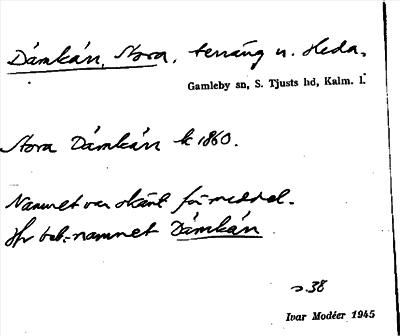 Dámkán, Nora, terräng n. Heda.
Gamleby sn, S. Tjusts hd, Kalm. l.
Nora Dámkán k 1860.
Namnet var okänt för meddel.
Jfr beb.-namnet Dámkán
s. 38
Ivar Modéer 1945